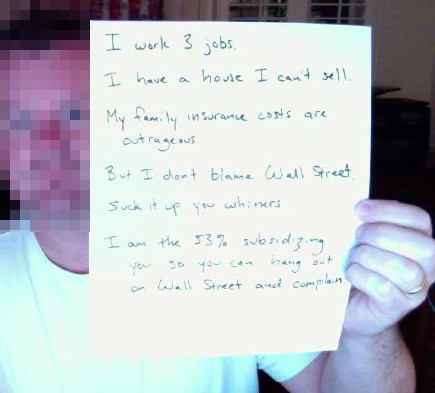 I work 3 jobs.
I have a house I can't sell.
My family insurance costs are
outrageous
But I dont blame Wall Street.
Suck it up you whiners
I am the 53% subsidizing
you so you can hang out
on Wall Street and complain